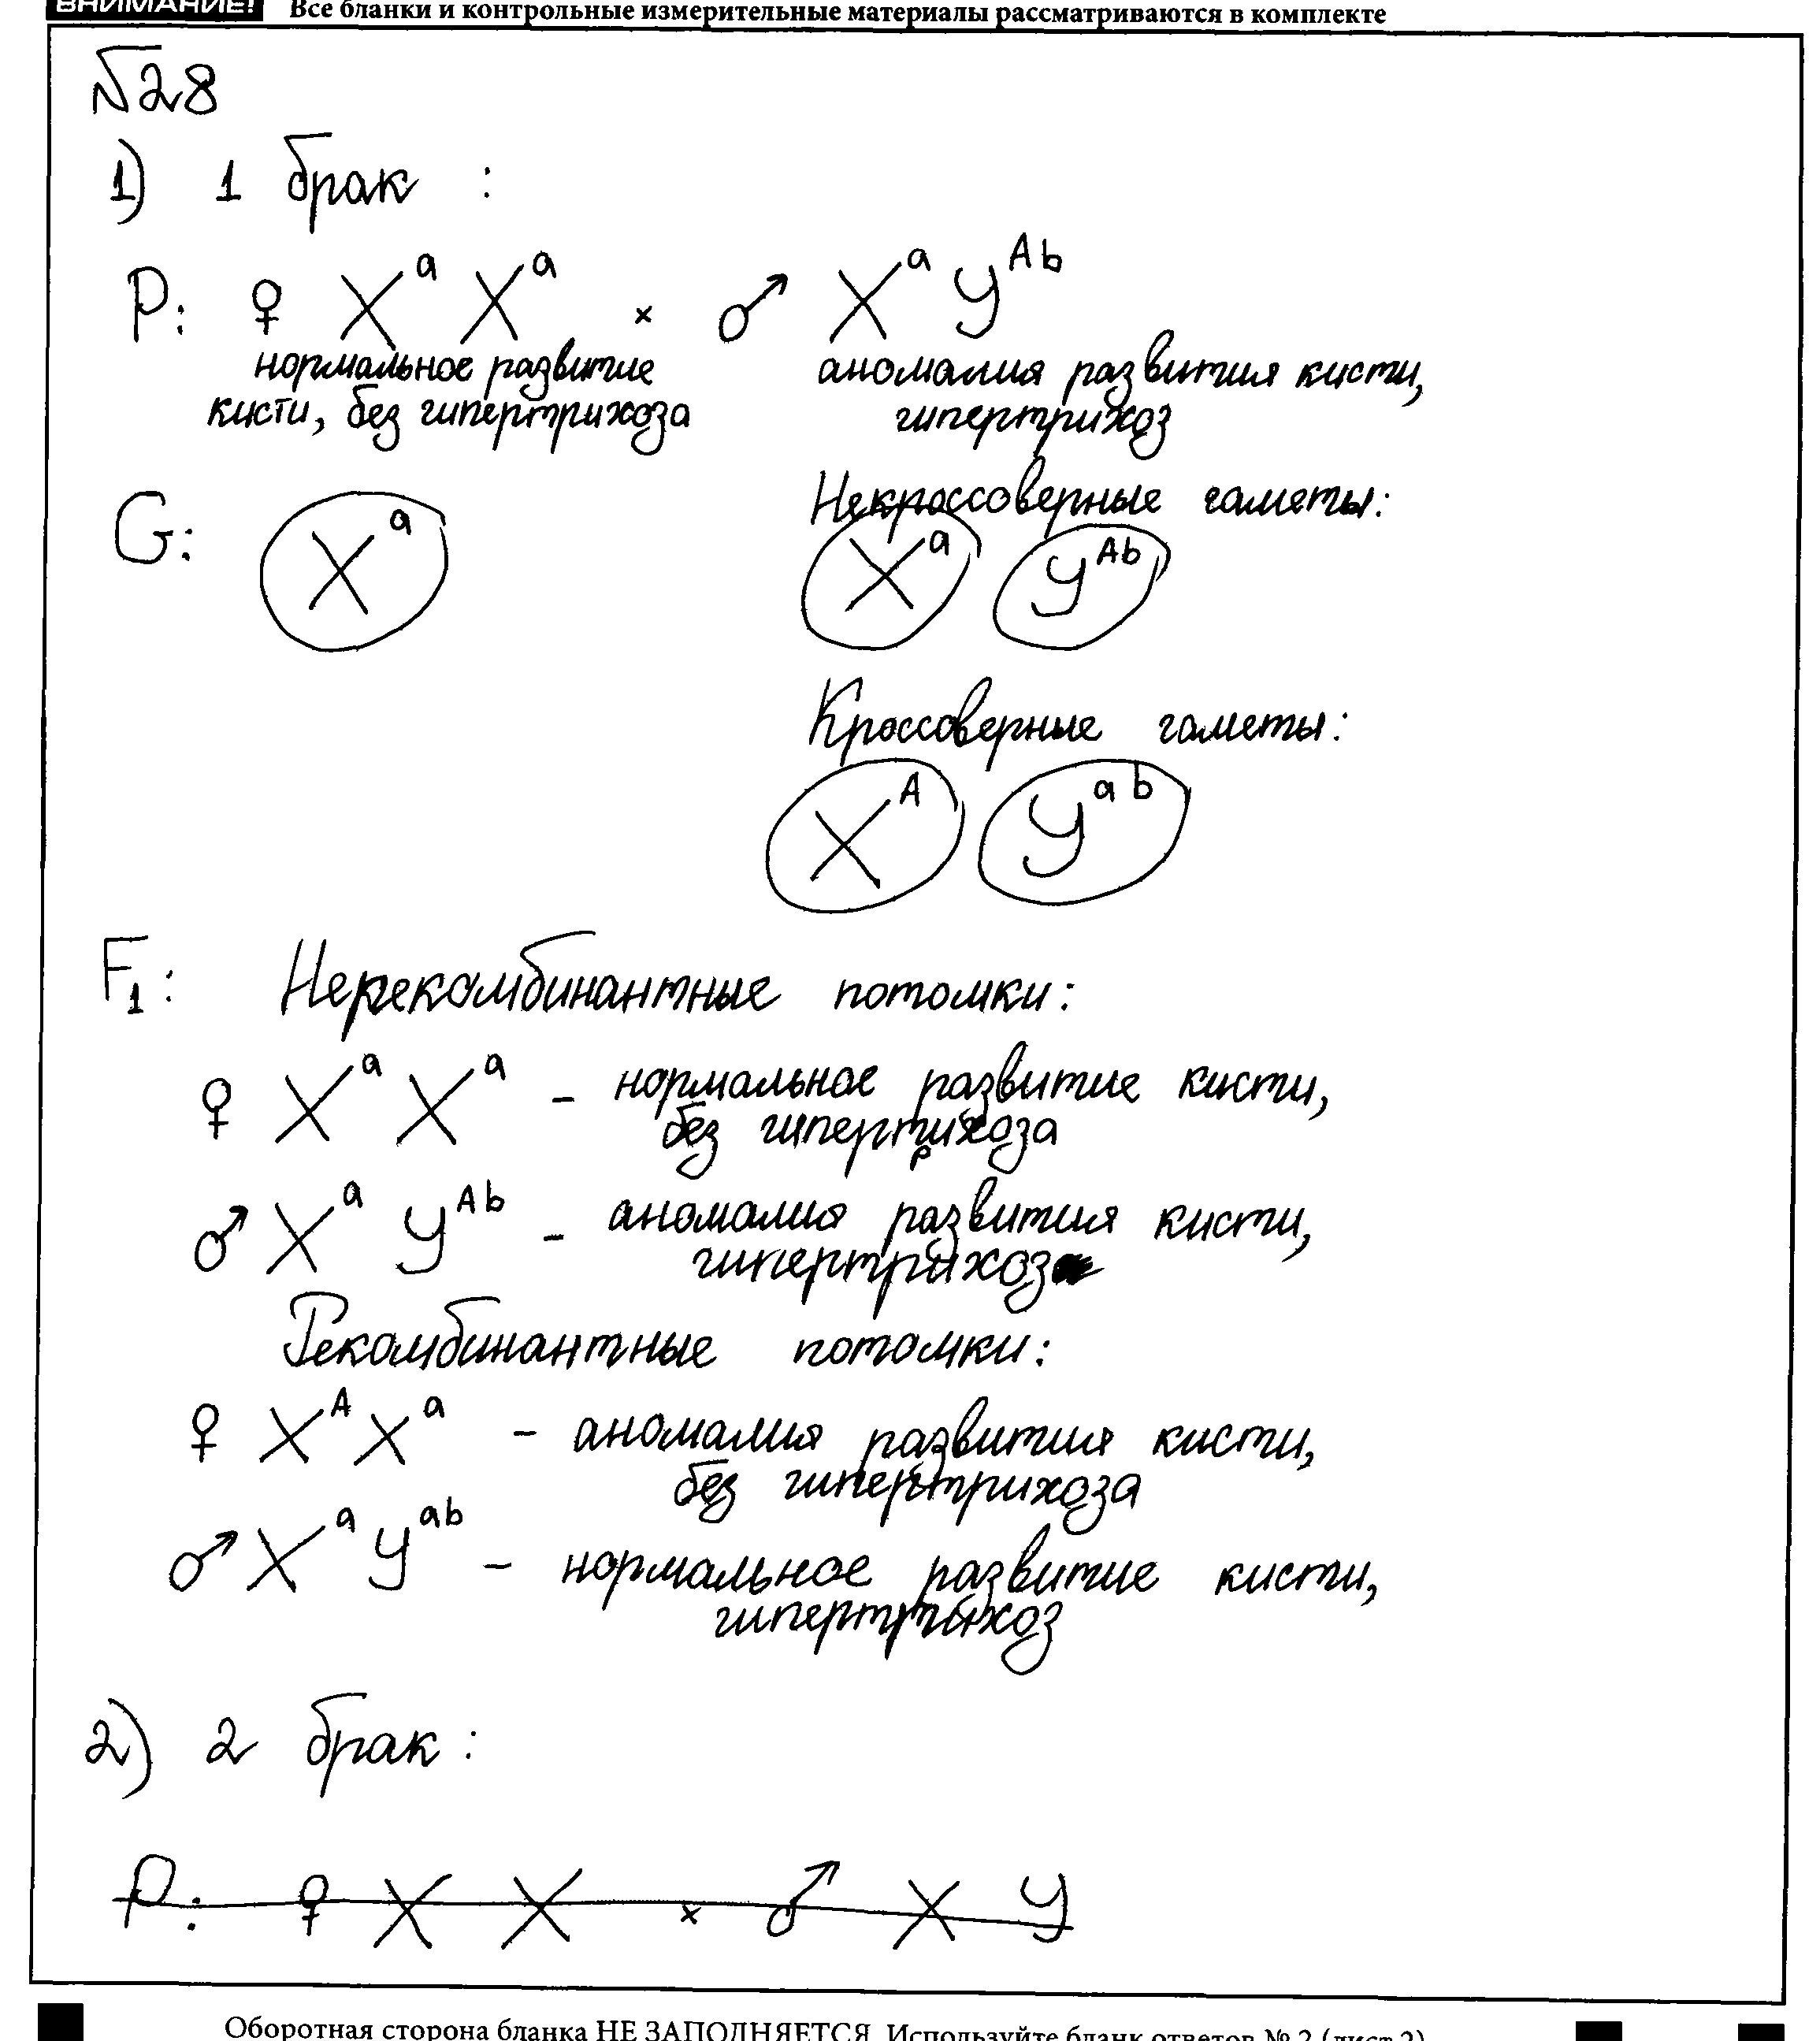 ВНИМАНИЕ! Все бланки и контрольные измерительные материалы рассматриваются в комплекте
№28
1) 1 брак :
P: ♀ XᵃXᵃ × ♂ XᵃYᴬᵇ
нормальное развитие аномалия развития кисти,
кисти, без гипертрихоза гипертрихоз
Некроссоверные гаметы:
G: Xᵃ Xᵃ Yᴬᵇ
Кроссоверные гаметы:
Xᴬ Yᵃᵇ
F₁: Нерекомбинантные потомки:
♀ XᵃXᵃ - нормальное развитие кисти,
без гипертрихоза
♂ XᵃYᴬᵇ - аномалия развития кисти,
гипертрихоз
Рекомбинантные потомки:
♀ XᴬXᵃ - аномалия развития кисти,
без гипертрихоза
♂ XᵃYᵃᵇ - нормальное развитие кисти,
гипертрихоз
2) 2 брак :
P: ♀ X X × ♂ X Y
Оборотная сторона бланка НЕ ЗАПОЛНЯЕТСЯ. Используйте бланк ответов № 2 (лист 2)